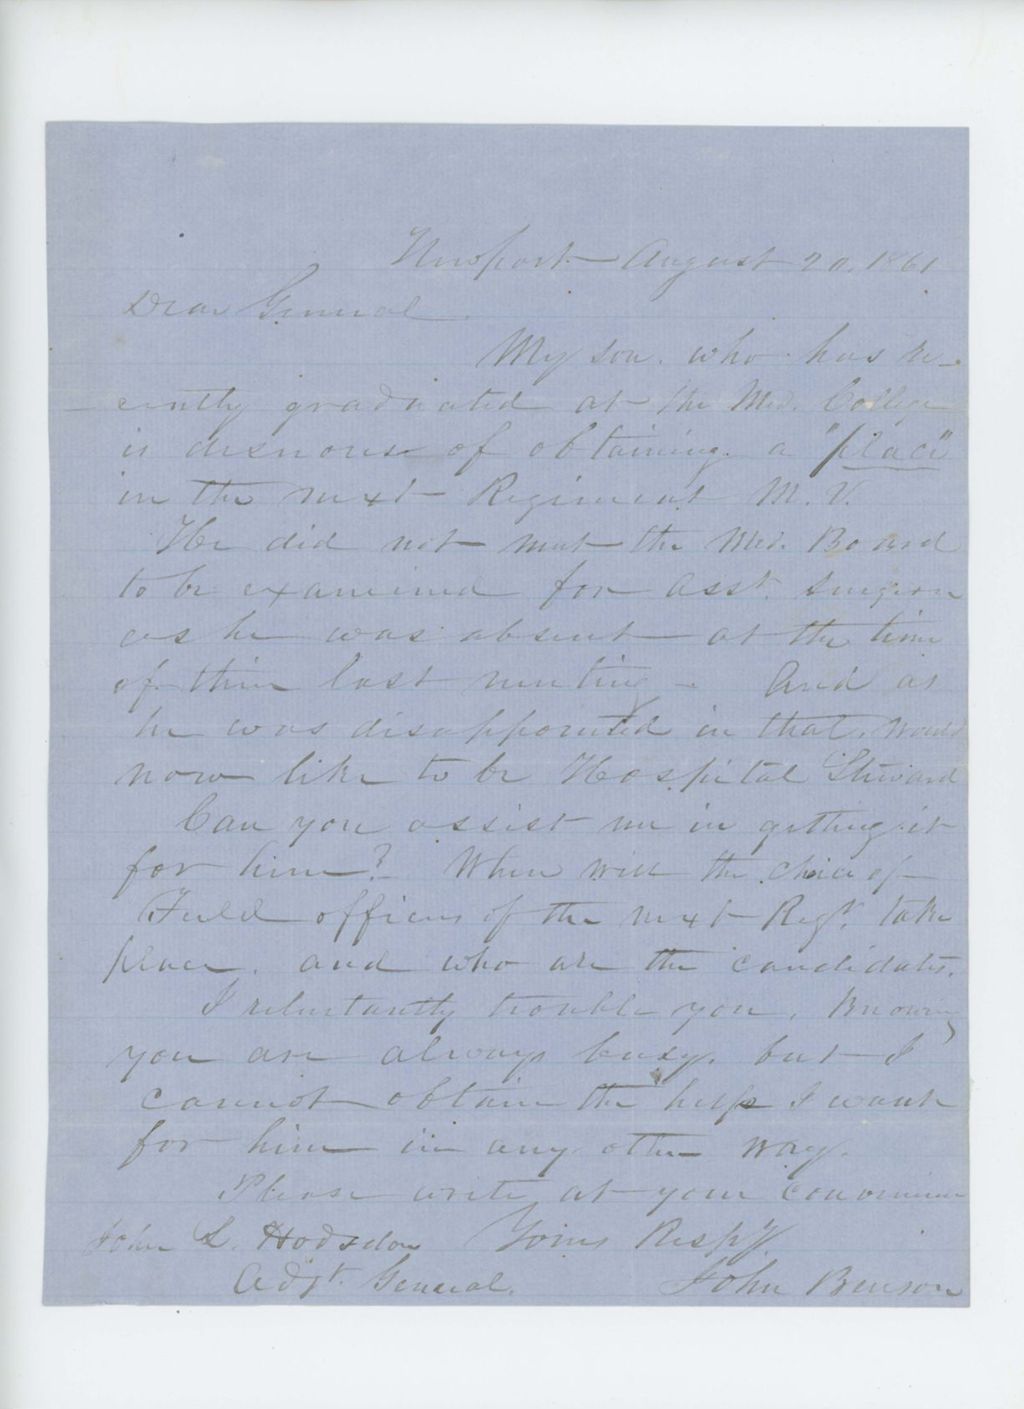 Newport August 20, 1861
Dear General
My son, who has re-
cently graduated at the Med. College
is desirous of obtaining a "place"
in the next Regiment M. V.
He did not meet the Med. Board
to be examined for asst. surgeon
as he was absent at the time
of their last meeting - And as
he was disappointed in that, would
now like to be Hospital Steward
Can you assist me in getting it
for him? When will the choice of
Field officers of the next Regt. take
place, and who are the candidates.
I reluctantly trouble you, knowing
you are always busy, but I
cannot obtain the help I want
for him in any other way.
Please write at your convenience
John L. Hodsdon Yours Respy.
Adjt. General. John Benson